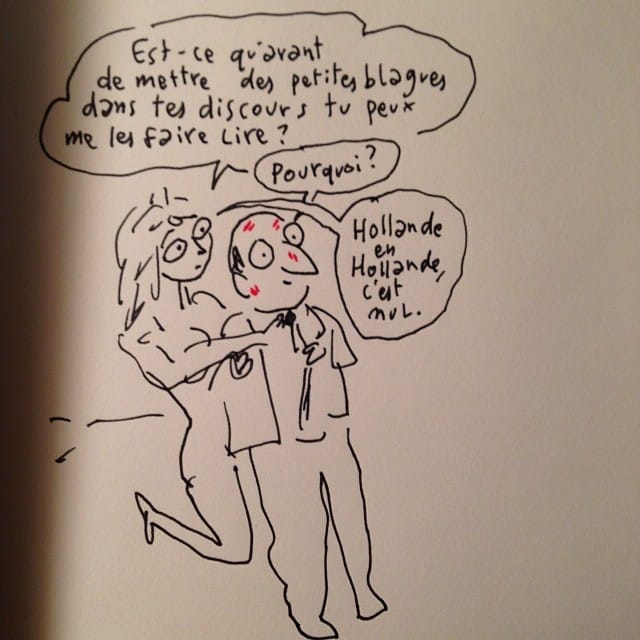 Est-ce qu'avant
de mettre des petites blagues
dans tes discours tu peux
me les faire lire ?
Pourquoi ?
Hollande
en
Hollande,
c'est
nul.